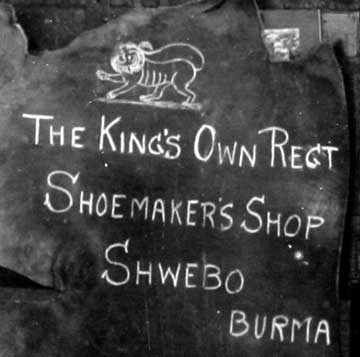 THE KING'S OWN REGT
SHOEMAKER'S SHOP
SHWEBO
BURMA